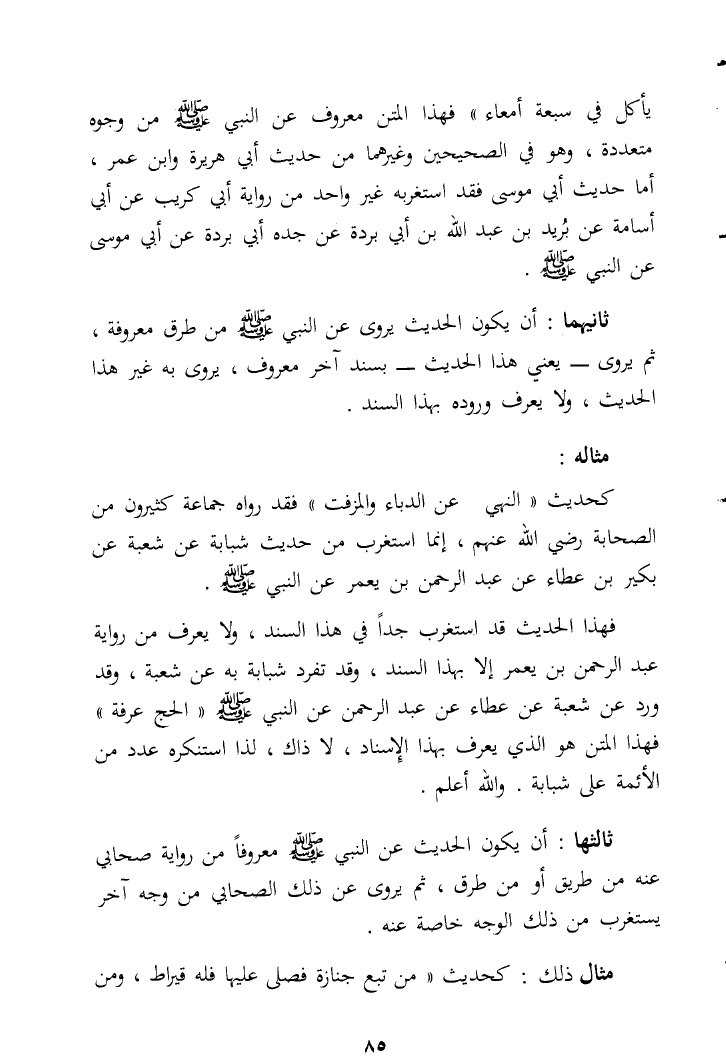 يأكل في سبعة أمعاء » فهذا المتن معروف عن النبي ﷺ من وجوه
متعددة ، وهو في الصحيحين وغيرهما من حديث أبي هريرة وابن عمر ،
أما حديث أبي موسى فقد استغربه غير واحد من رواية أبي كريب عن أبي
أسامة عن بُريد بن عبد الله بن أبي بردة عن جده أبي بردة عن أبي موسى
عن النبي ﷺ .
ثانيهما : أن يكون الحديث يروى عن النبي ﷺ من طرق معروفة ،
ثم يروى — يعني هذا الحديث — بسند آخر معروف ، يروى به غير هذا
الحديث ، ولا يعرف وروده بهذا السند .
مثاله :
كحديث « النهي عن الدباء والمزفت » فقد رواه جماعة كثيرون من
الصحابة رضي الله عنهم ، إنما استغرب من حديث شبابة عن شعبة عن
بكير بن عطاء عن عبد الرحمن بن يعمر عن النبي ﷺ .
فهذا الحديث قد استغرب جداً في هذا السند ، ولا يعرف من رواية
عبد الرحمن بن يعمر إلا بهذا السند ، وقد تفرد شبابة به عن شعبة ، وقد
ورد عن شعبة عن عطاء عن عبد الرحمن عن النبي ﷺ « الحج عرفة »
فهذا المتن هو الذي يعرف بهذا الإسناد ، لا ذاك ، لذا استنكره عدد من
الأئمة على شبابة . والله أعلم .
ثالثها : أن يكون الحديث عن النبي ﷺ معروفاً من رواية صحابي
عنه من طريق أو من طرق ، ثم يروى عن ذلك الصحابي من وجه آخر
يستغرب من ذلك الوجه خاصة عنه .
مثال ذلك : كحديث « من تبع جنازة فصلى عليها فله قيراط ، ومن
٨٥